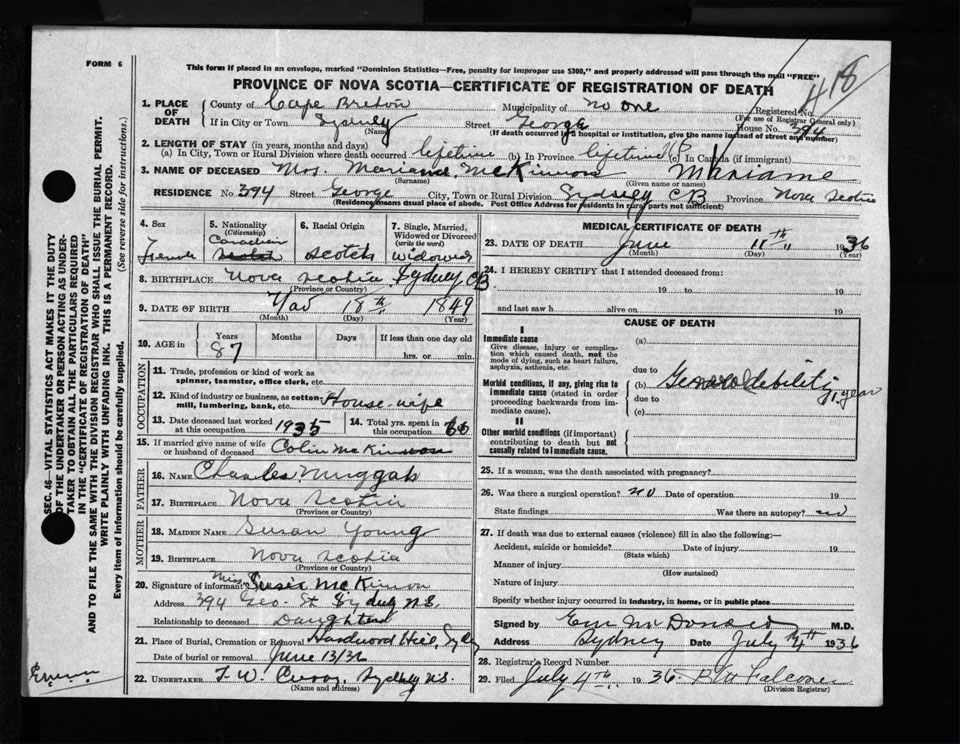 FORM 6
This form if placed in an envelope, marked "Dominion Statistics—Free, penalty for improper use $300," and properly addressed will pass through the mail "FREE"
418
PROVINCE OF NOVA SCOTIA—CERTIFICATE OF REGISTRATION OF DEATH
1. PLACE OF DEATH County of Cape Breton Municipality of No one Registered No.
(For use of Registrar General only)
If in City or Town Sydney Street George House No. 394
(Name) (If death occurred in a hospital or institution, give the name instead of street and number)
2. LENGTH OF STAY (in years, months and days)
(a) In City, Town or Rural Division where death occurred lifetime (b) In Province lifetime (c) In Canada (if immigrant)
3. NAME OF DECEASED Mrs. Mariame McKinnon Mariame
(Surname) (Given name or names)
RESIDENCE No. 394 Street George City, Town or Rural Division Sydney CB Province Nova Scotia
(Residence means usual place of abode. Post Office Address for residents in rural parts not sufficient)
4. Sex Female
5. Nationality (Citizenship) Canadian
6. Racial Origin Scotch
7. Single, Married, Widowed or Divorced (write the word) widowed
8. BIRTHPLACE Nova Scotia Sydney CB
(Province or Country)
9. DATE OF BIRTH 18th 1849
(Month) (Day) (Year)
10. AGE in Years 87 Months Days If less than one day old
hrs. or min.
OCCUPATION
11. Trade, profession or kind of work as spinner, teamster, office clerk, etc.
12. Kind of industry or business, as cotton-mill, lumbering, bank, etc. House-wife
13. Date deceased last worked at this occupation 1935
14. Total yrs. spent in this occupation 60
15. If married give name of wife or husband of deceased Colin McKinnon
FATHER
16. NAME Charles Muggah
17. BIRTHPLACE Nova Scotia
(Province or Country)
MOTHER
18. MAIDEN NAME Susan Young
19. BIRTHPLACE Nova Scotia
(Province or Country)
20. Signature of informant Miss Susie McKinnon
Address 394 Geo. St Sydney N.S.
Relationship to deceased Daughter
21. Place of Burial, Cremation or Removal Hardwood Hill, Sydney
Date of burial or removal June 13/36
22. UNDERTAKER F. W. Curry, Sydney N.S.
(Name and address)
MEDICAL CERTIFICATE OF DEATH
23. DATE OF DEATH June 11th 1936
(Month) (Day) (Year)
24. I HEREBY CERTIFY that I attended deceased from:
19 to 19
and last saw h alive on 19
CAUSE OF DEATH
I
Immediate cause
Give disease, injury or complication which caused death, not the mode of dying, such as heart failure, asphyxia, asthenia, etc.
(a)
due to
Morbid conditions, if any, giving rise to immediate cause (stated in order proceeding backwards from immediate cause).
(b) General debility 1 year
due to
(c)
II
Other morbid conditions (if important) contributing to death but not causally related to immediate cause.
25. If a woman, was the death associated with pregnancy?
26. Was there a surgical operation? no Date of operation 19
State findings Was there an autopsy? no
27. If death was due to external causes (violence) fill in also the following:—
Accident, suicide or homicide? Date of injury 19
(State which)
Manner of injury
(How sustained)
Nature of injury
Specify whether injury occurred in industry, in home, or in public place
Signed by McDonald M.D.
Address Sydney Date July 4th 1936
28. Registrar's Record Number
29. Filed July 4th 1936
(Division Registrar)
SEC. 46—VITAL STATISTICS ACT MAKES IT THE DUTY
OF THE UNDERTAKER OR PERSON ACTING AS UNDER-
TAKER TO OBTAIN ALL THE PARTICULARS REQUIRED
IN THE "CERTIFICATE OF REGISTRATION OF DEATH"
AND TO FILE THE SAME WITH THE DIVISION REGISTRAR WHO SHALL ISSUE THE BURIAL PERMIT.
WRITE PLAINLY WITH UNFADING INK. THIS IS A PERMANENT RECORD.
Every item of information should be carefully supplied. (See reverse side for instructions.)